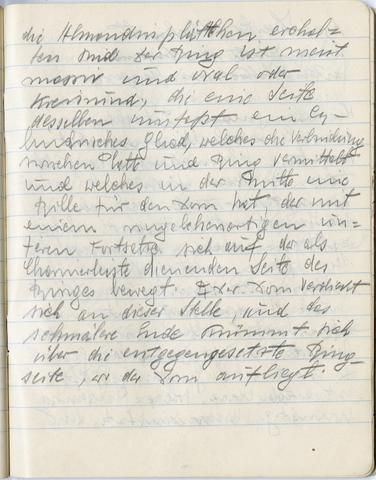 die Almandinplättchen erhal=
ten sind. Der Ring ist meist
massiv und oval oder
kreisrund, die eine Seite
desselben umfasst ein Cy=
lindrisches Glied, welches die Verbindung
zwischen Platte und Ring vermittelt
und welches in der Mitte eine
Rille für den Dorn hat der mit
einem angelschenartigen un=
teren Fortsatz sich auf der als
Charnierleiste dienenden Seite des
Ringes bewegt. Der Dorn verdickt
sich an dieser Stelle, und das
schmälere Ende krümmt sich
über die entgegengesetzte Ring=
seite, wo der Dorn aufliegt.